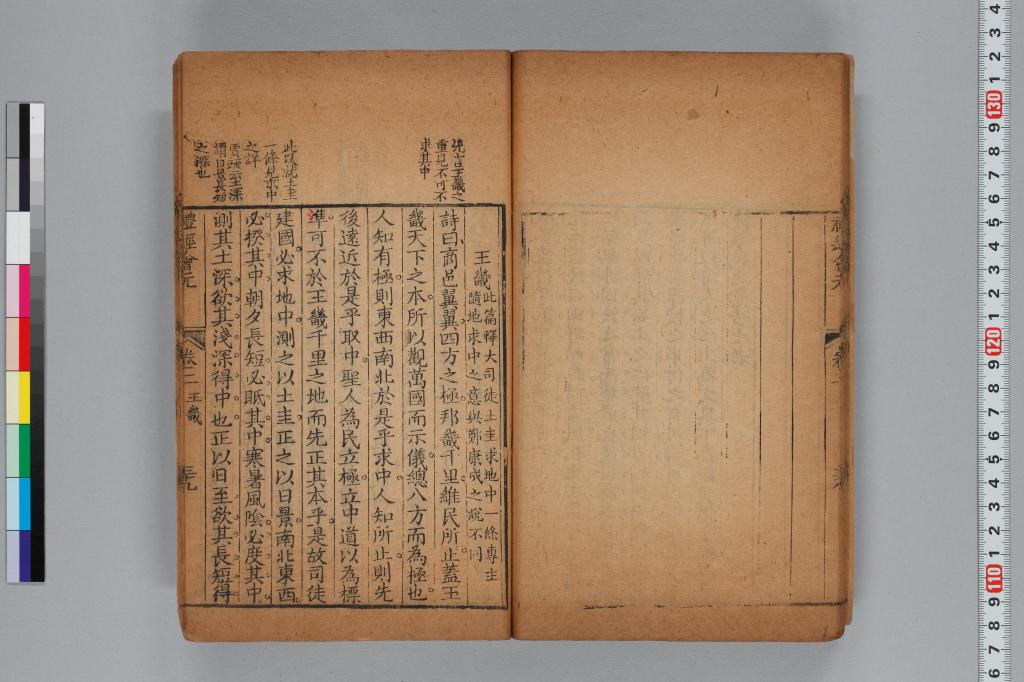 先言王畿之
重見不可不
求其中
王畿
此篇釋大司徒土圭求地中一條專主
隨地求中之意與鄭康成之說不同
詩曰商邑翼翼四方之極邦畿千里維民所止蓋王
畿天下之本所以觀萬國而示儀總八方而為極也
人知有極則東西南北於是乎求中人知所止則先
後遠近於是乎取中聖人為民立極立中道以為標
準可不於王畿千里之地而先正其本乎是故司徒
此段就土圭
一條見求中
之詳
賈疏云土深
謂日景長短
之深也
建國必求地中測之以土圭正之以日景南北東西
必揆其中朝夕長短必眡其中寒暑風陰必度其中
測其土深欲其淺深得中也正以日至欲其長短得
禮經會元
卷二
王畿
三十九
禮經會元